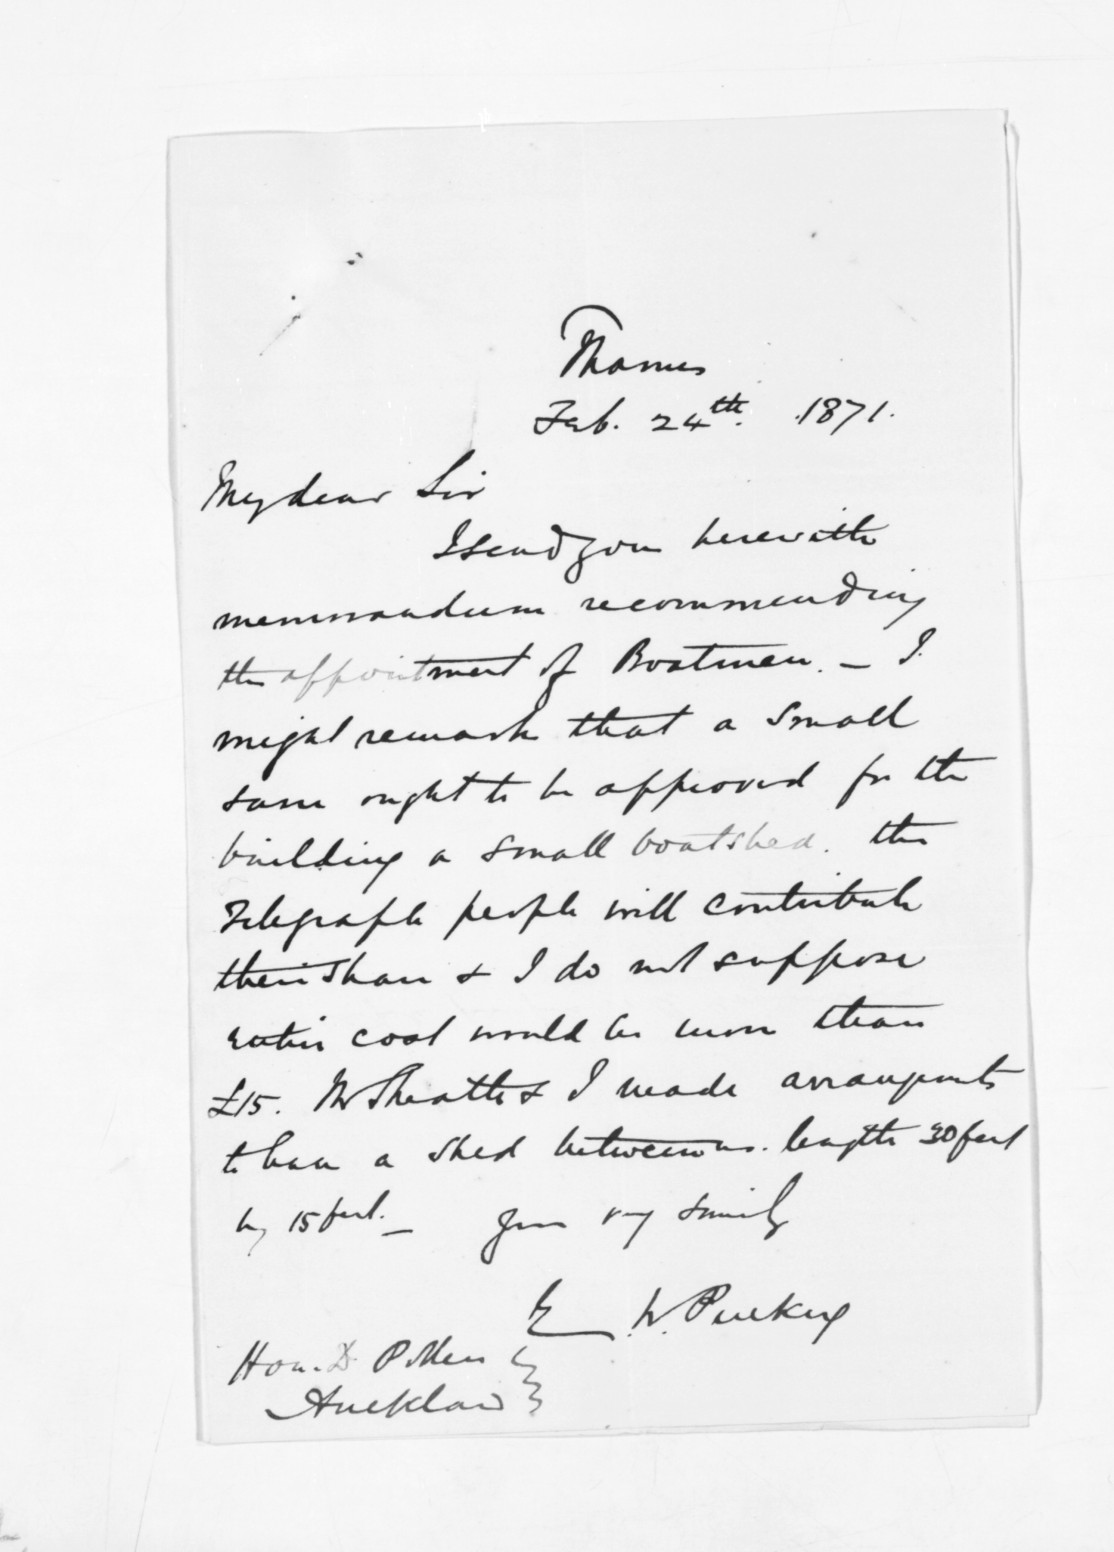 Thames
Feb. 24th. 1871.
My dear Sir
I send you herewith
memorandum recommending
the appointment of Boatmen. _ I.
might remark that a small
same ought to be approved for the
building a small boatshed. the
Telegraph people will contribute
their share & I do not suppose
entire cost would be more than
£15. Mr Sheath & I made arrangements
to have a shed between us. length 30 feet
by 15 feet. _ Yours very sincerely
E. W. Puckey
Hon. Dr Pollen
Auckland